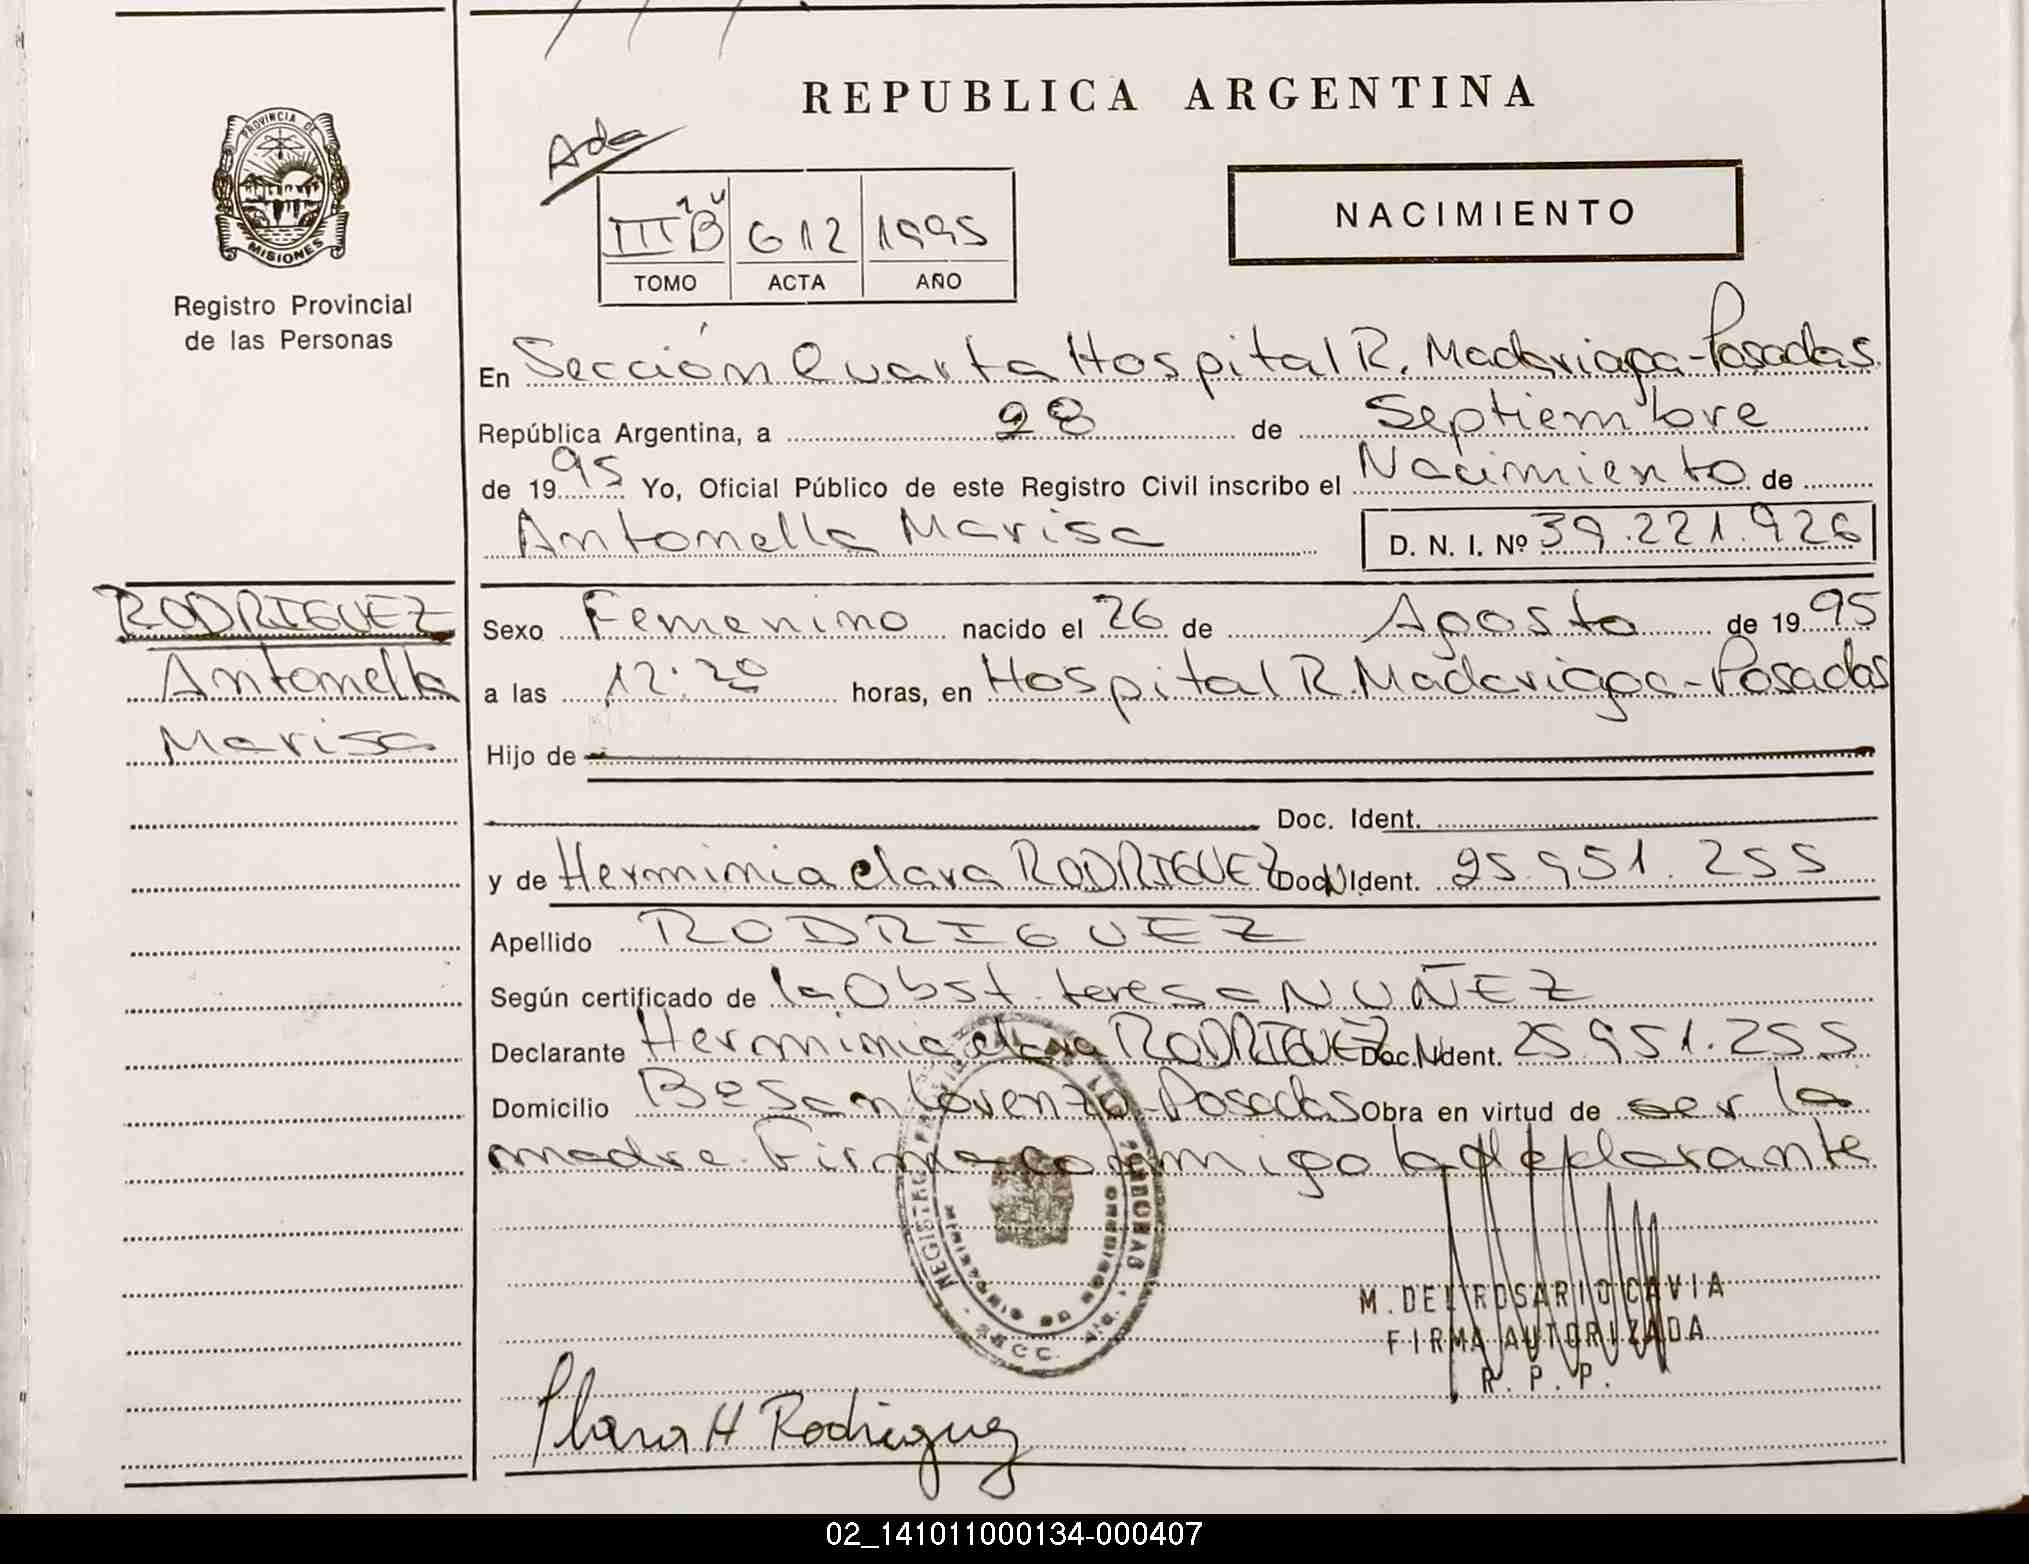 REPUBLICA ARGENTINA
Ada
PROVINCIA DE
MISIONES
Registro Provincial
de las Personas
III 1º B 612 1995
TOMO ACTA AÑO
NACIMIENTO
En Sección Cuarta Hospital R. Madariaga-Posadas
República Argentina, a 28 de Septiembre
de 1995 Yo, Oficial Público de este Registro Civil inscribo el Nacimiento de
Antonella Marisa D. N. I. Nº 39.221.926
RODRIGUEZ
Antonella
Marisa
Sexo Femenino nacido el 26 de Agosto de 1995
a las 12:20 horas, en Hospital R. Madariaga-Posadas
Hijo de
Doc. Ident.
y de Herminia clara RODRIGUEZ Doc. Ident. 25.951.255
Apellido RODRIGUEZ
Según certificado de la Obst. teresa NUÑEZ
Declarante Herminia clara RODRIGUEZ Doc. Ident. 25.951.255
Domicilio Bº San Lorenzo-Posadas Obra en virtud de ser la
madre. Firma conmigo la declarante
REGISTRO PERSONAS
MISIONES
SECC.
M. DEL ROSARIO CAVIA
FIRMA AUTORIZADA
R. P. P.
Clara H Rodriguez
02_141011000134-000407